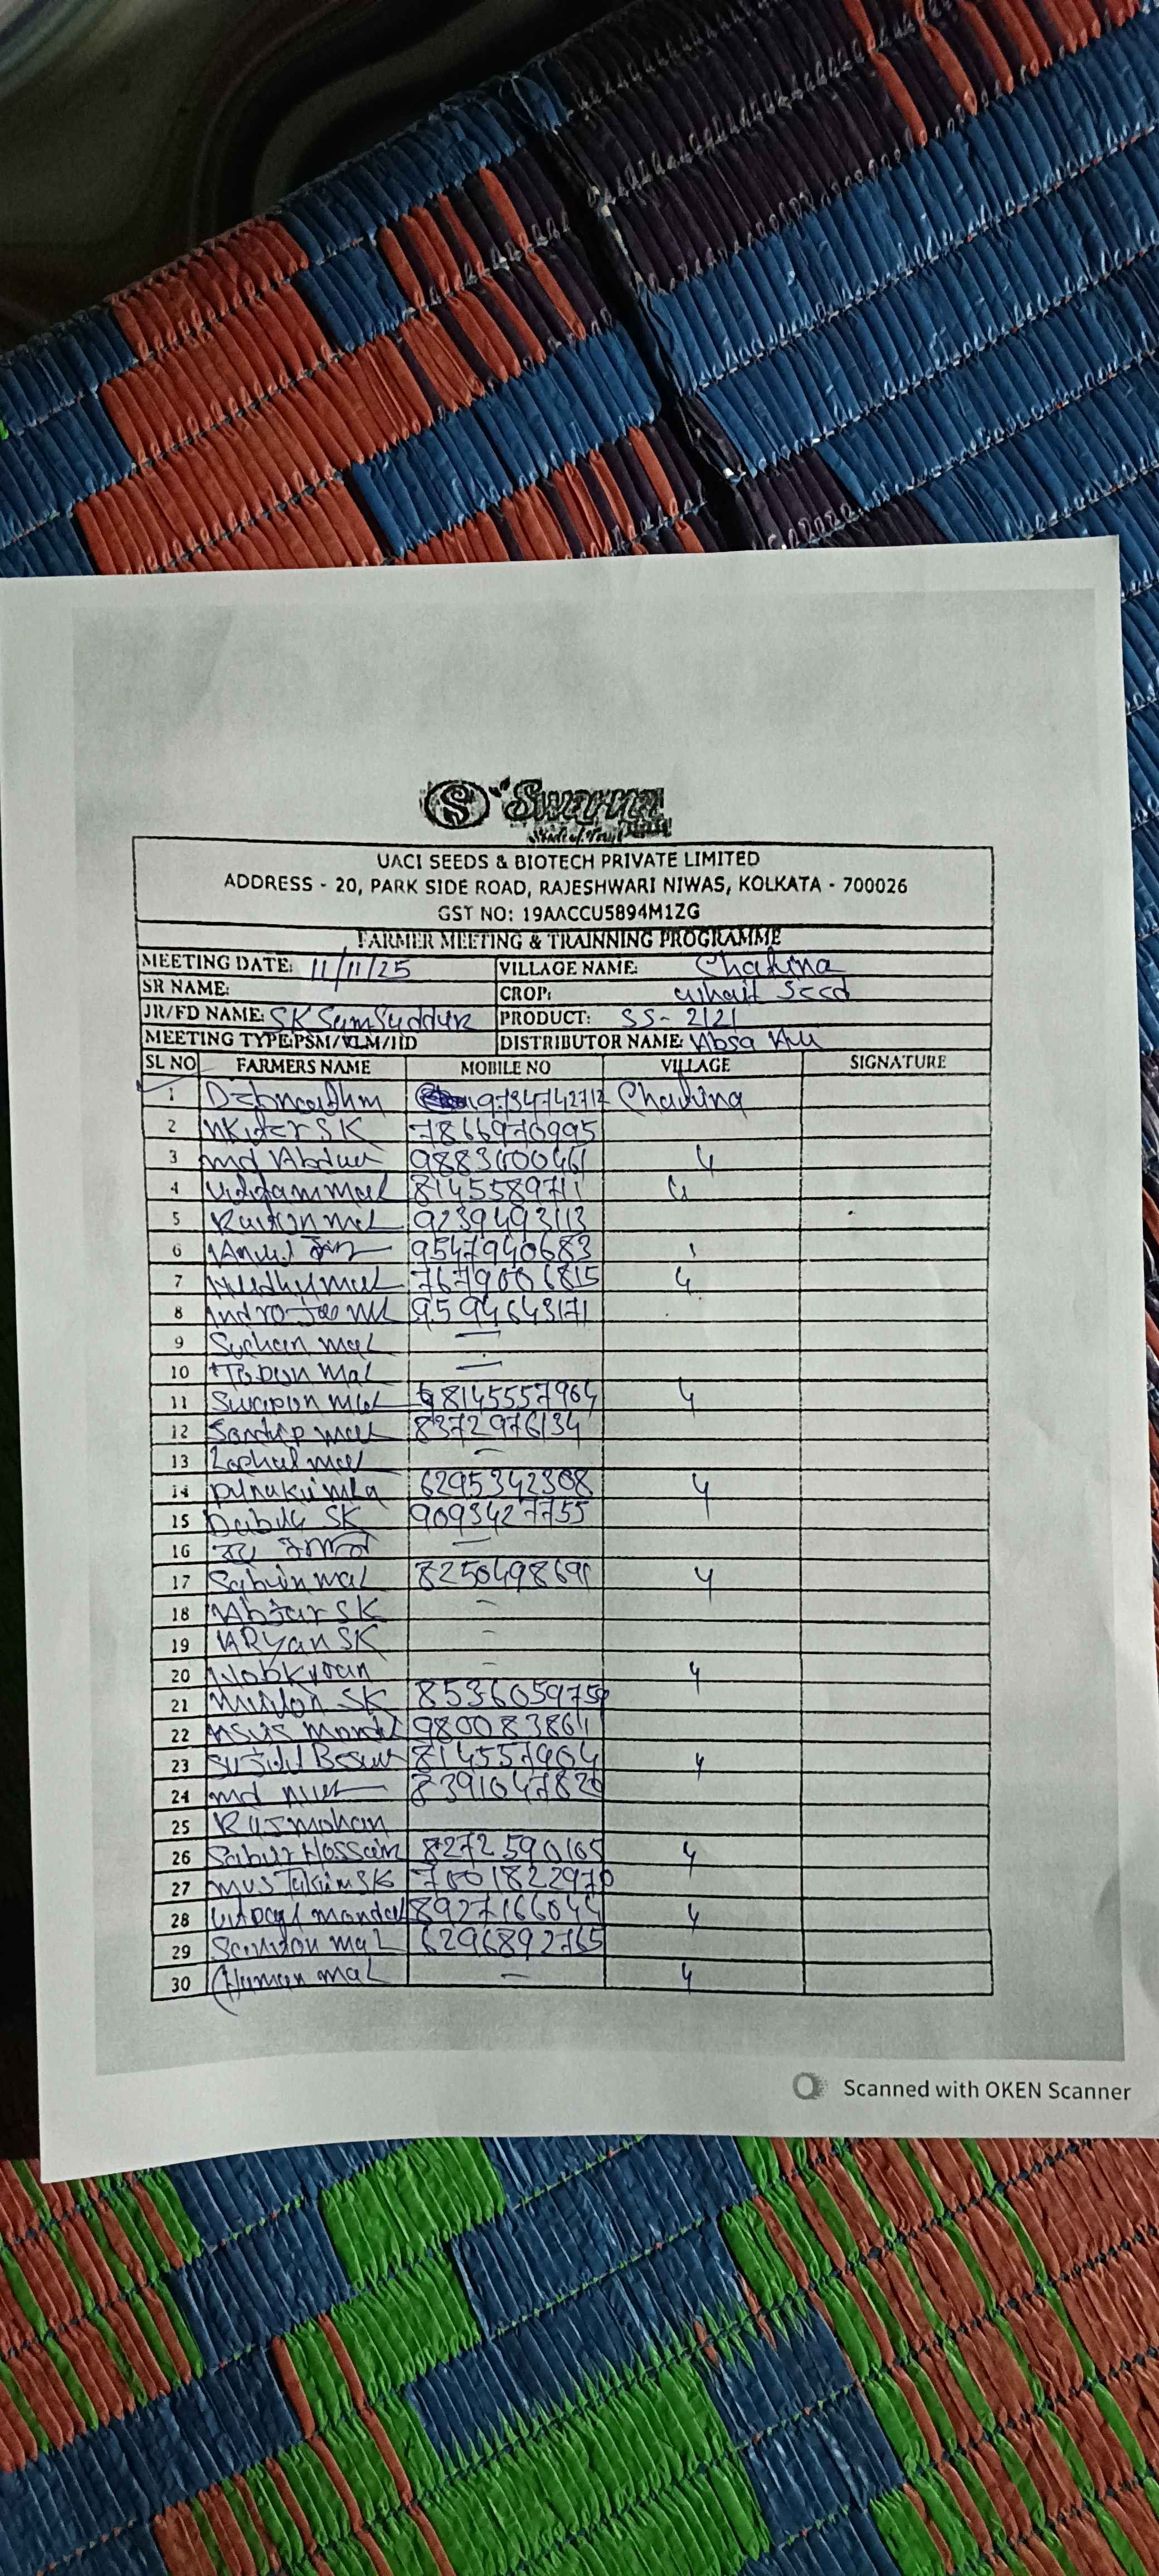 S Swarna
UACI SEEDS & BIOTECH PRIVATE LIMITED
ADDRESS - 20, PARK SIDE ROAD, RAJESHWARI NIWAS, KOLKATA - 700026
GST NO: 19AACCU5894M1ZG
FARMER MEETING & TRAINNING PROGRAMME
MEETING DATE: 11/11/25 VILLAGE NAME: Chalina
SR NAME: CROP: whait Seed
JR/FD NAME: SK Samsuddur PRODUCT: SS-2121
MEETING TYPE:PSM/VLM/JID DISTRIBUTOR NAME: Absa
SL NO FARMERS NAME MOBILE NO VILLAGE SIGNATURE
1 9734742712 Chalina
2 SK 7866970995
3 md Abdul 9883400461 4
4 8145589711
5 9239493113
6 9547940683
7 7679006815 4
8 9594643171
9 Suchan mal —
10 Tapun Mal —
11 Swapon mal 8145557964 4
12 Sandip mal 8372976134
13 mal —
14 6295342308 4
15 Dabik SK 9093427755
16 —
17 Sabin mal 8250498691 4
18 Absar SK —
19 ARyan SK —
20 — 4
21 SK 8536059759
22 Mondal 9800838611
23 814557964 4
24 md 8391047820
25 Rajmohan
26 Sabur Hossain 8272590165 4
27 Mustakim SK 7001822970
28 mondal 8927166044 4
29 mal 6296892765
30 mal — 4
Scanned with OKEN Scanner